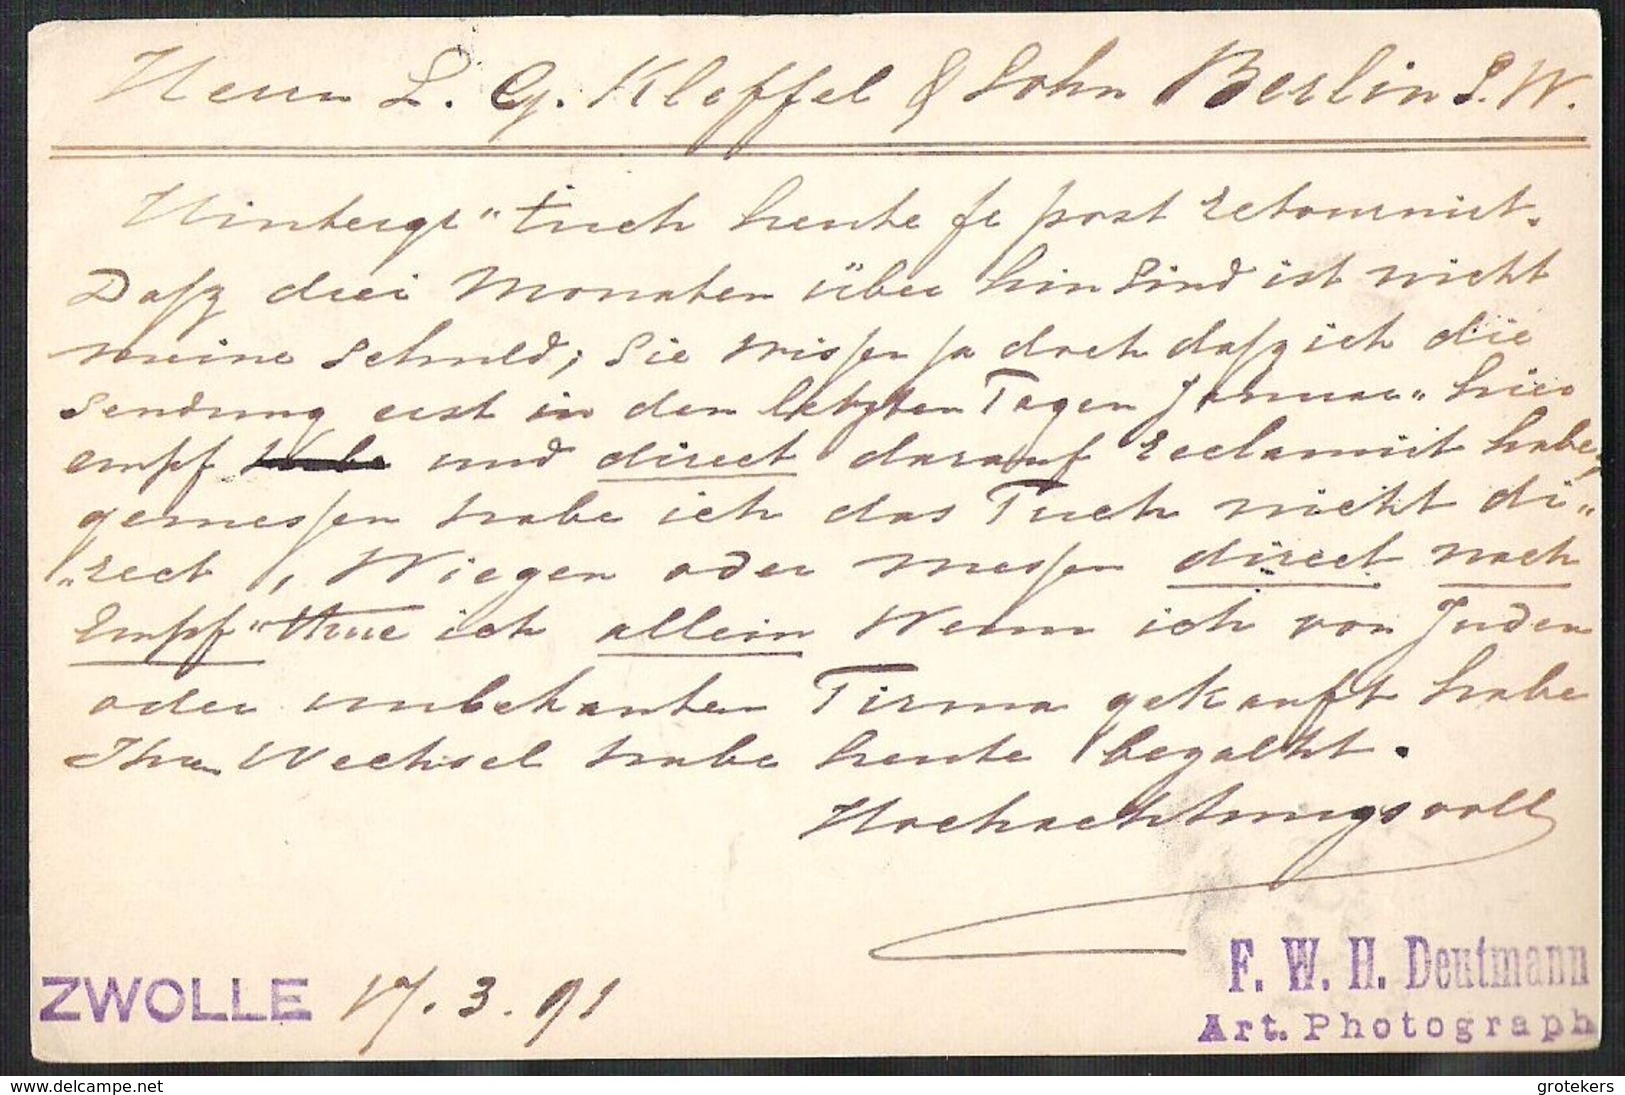 Herrn L. G. Kleffel & Sohn Berlin S.W.
Hintergr" Tuch heute fr post retournirt.
Dasz drei Monaten über hin Sind ist nicht
meine Schuld; Sie wissen ja doch dasz ich die
Sendung erst in den letzten Tagen Januar" hier
empf und direct darauf reclamirt habe,
gemessen habe ich das Tuch nicht di"
"rect, Wiegen oder messen direct nach
Empf" thue ich allein Wenn ich von Juden
oder unbekanten Firma gekauft habe
Ihren Wechsel habe heute bezalht.
Hochachtungsvoll
F. W. H. Deutmann
ZWOLLE 17. 3. 91
Art. Photograph
www.delcampe.net
grotekers